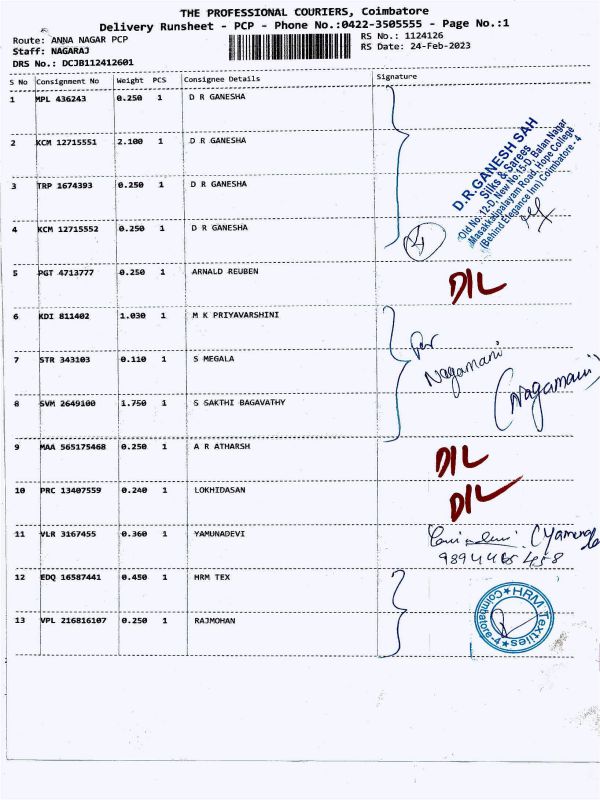 THE PROFESSIONAL COURIERS, Coimbatore
Delivery Runsheet - PCP - Phone No.:0422-3505555 - Page No.:1
Route: ANNA NAGAR PCP
RS No.: 1124126
Staff: NAGARAJ
RS Date: 24-Feb-2023
DRS No.: DCJB112412601
S No Consignment No Weight PCS Consignee Details Signature
1 MPL 436243 0.250 1 D R GANESHA
2 KCM 12715551 2.100 1 D R GANESHA
3 TRP 1674393 0.250 1 D R GANESHA
4 KCM 12715552 0.250 1 D R GANESHA
D.R.GANESH SAH
Silks & Sarees
Old No:12-D, New No:15-D, Balan Nagar
Masakkalipalayam Road, Hope College
(Behind Elegance Inn) Coimbatore - 4
4
5 PGT 4713777 0.250 1 ARNALD REUBEN DIL
6 KDI 811402 1.030 1 M K PRIYAVARSHINI
7 STR 343103 0.110 1 S MEGALA
Nagamani
(Nagamani)
8 SVM 2649100 1.750 1 S SAKTHI BAGAVATHY
9 MAA 565175468 0.250 1 A R ATHARSH DIL
10 PRC 13407559 0.240 1 LOKHIDASAN DIL
11 VLR 3167455 0.360 1 YAMUNADEVI
12 EDQ 16587441 0.450 1 HRM TEX
13 VPL 216816107 0.250 1 RAJMOHAN
HRM Textiles
Coimbatore-4